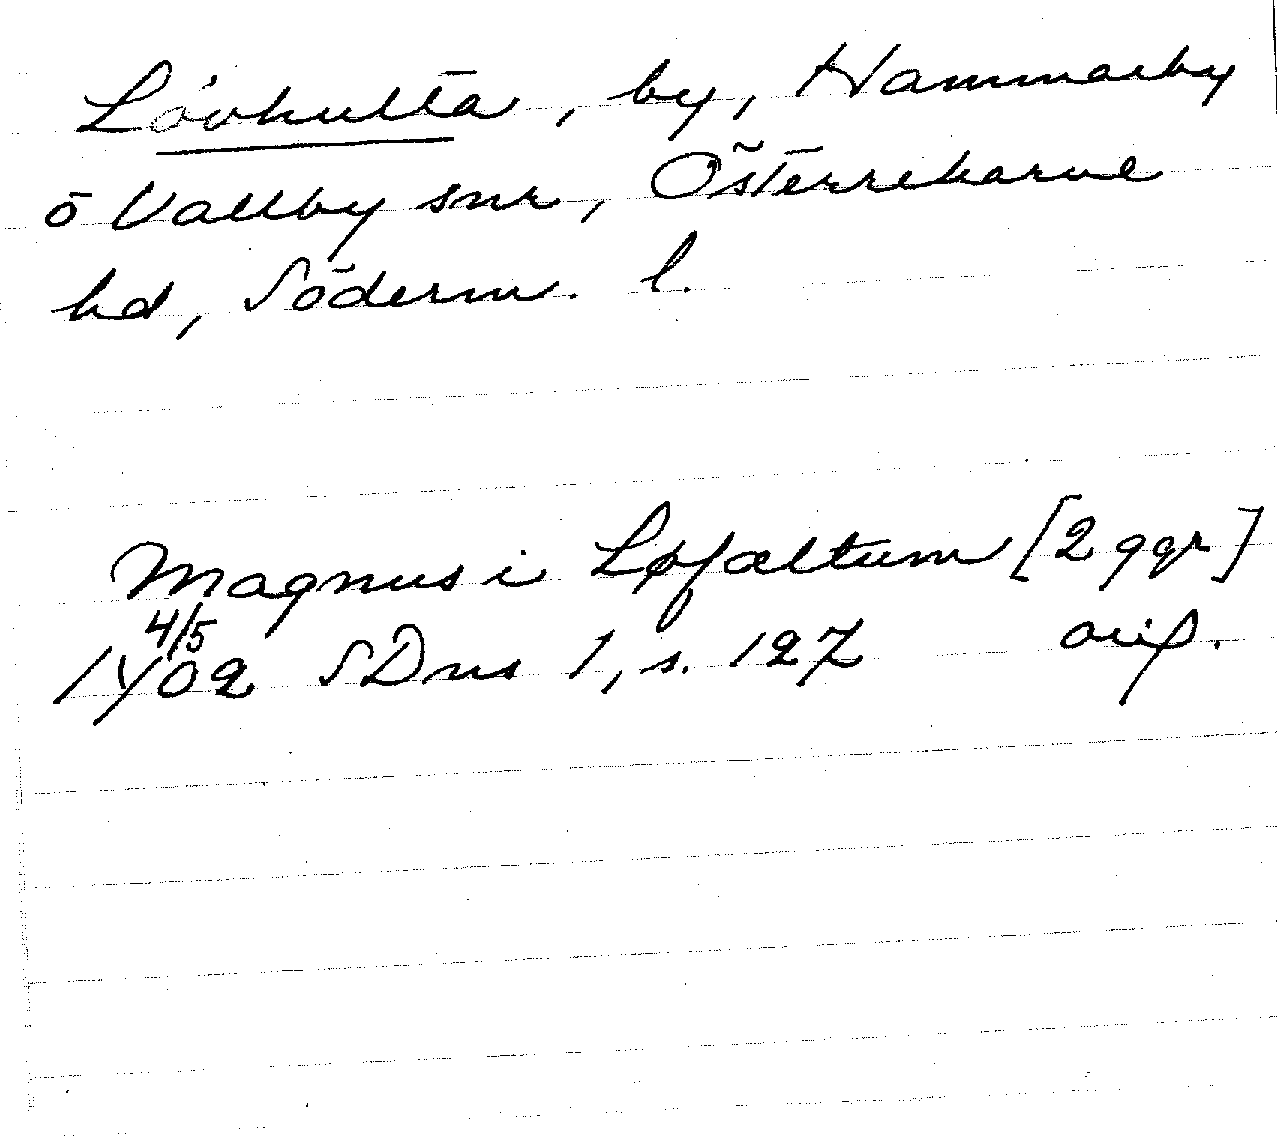 Lövhulta, by, Hammarby
o Vallby snr, Österrekarne
hd, Söderm. l.
Magnus i Løfæltum [2 ggr]
4/5
1402 SDns 1, s. 127 orig.